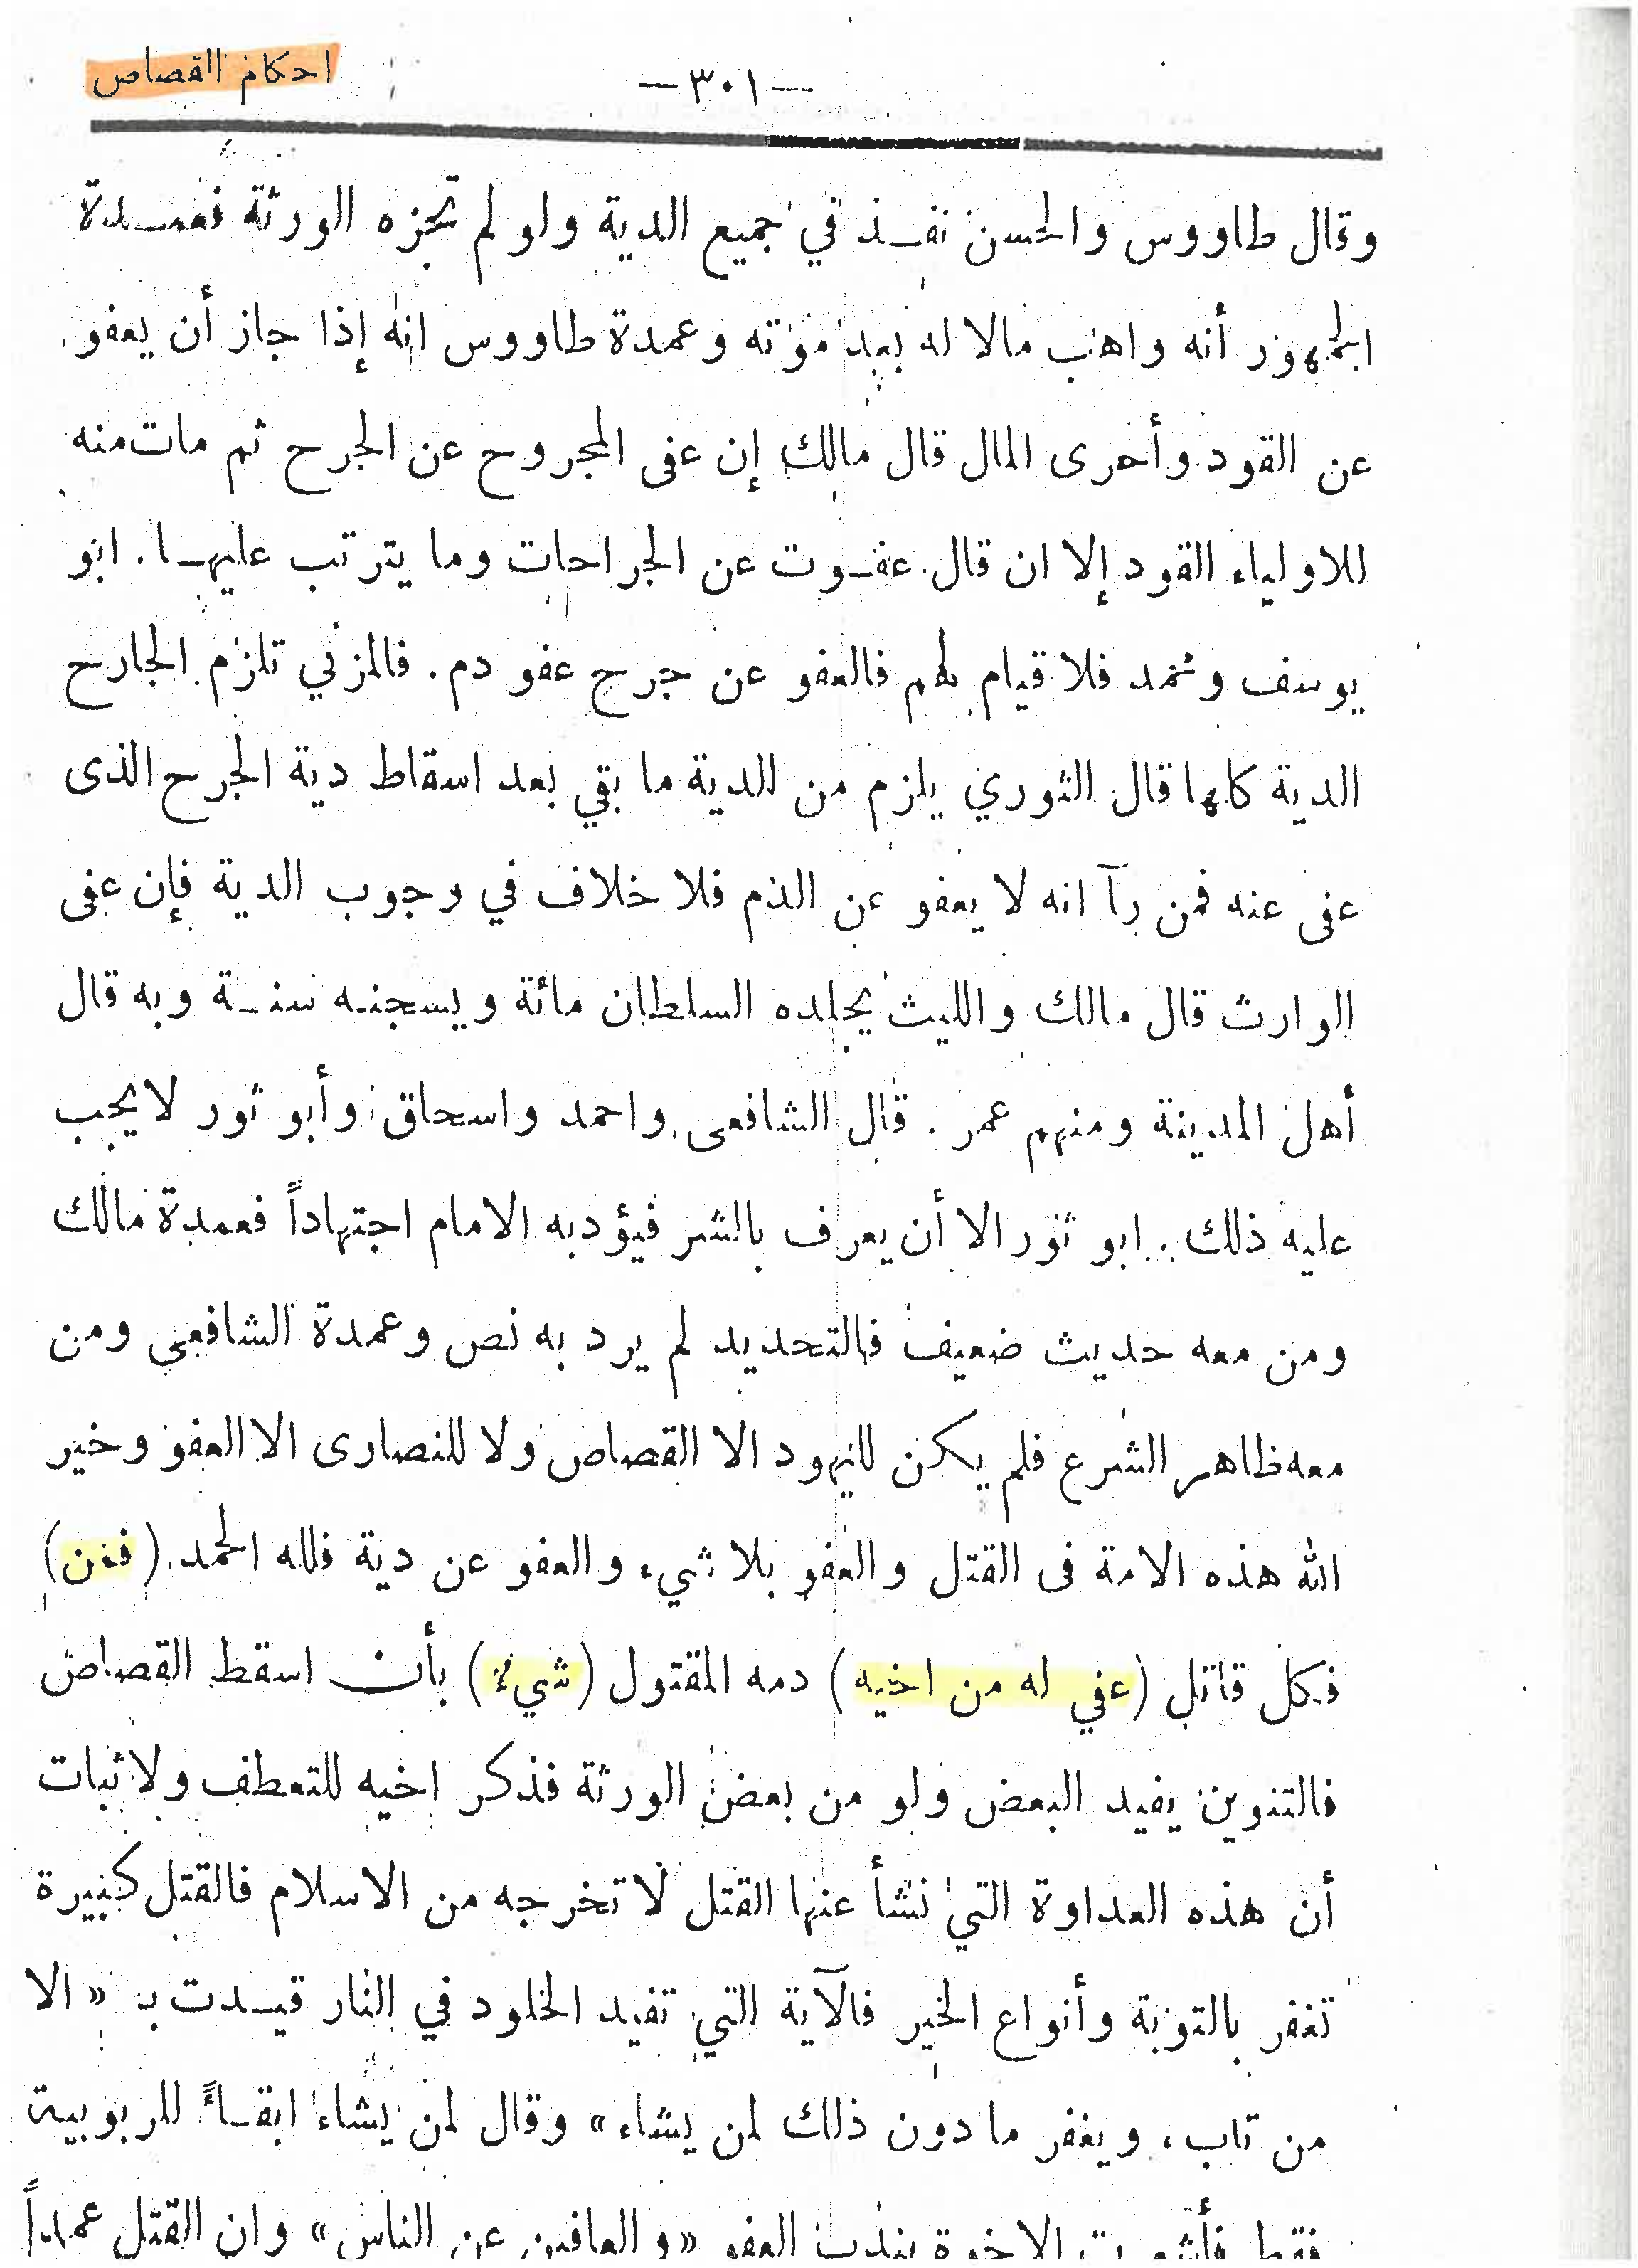 احكام القصاص
—٣٠١—
وقال طاووس والحسن نفــذ في جميع الدية ولو لم تجزه الورثة فعمــدة
الجمهور أنه واهب مالا له بعد موته وعمدة طاووس انه إذا جاز أن يعفو
عن القود وأحرى المال قال مالك إن عفى المجروح عن الجرح ثم مات منه
للاولياء القود إلا ان قال عفــوت عن الجراحات وما يترتب عليهــا. ابو
يوسف ومحمد فلا قيام لهم فالعفو عن جرح عفو دم. فالمزني تلزم الجارح
الدية كلها قال الثوري يلزم من الدية ما بقي بعد اسقاط دية الجرح الذى
عفى عنه فمن رآ انه لا يعفو عن الدم فلا خلاف في وجوب الدية فإن عفى
الوارث قال مالك والليث يجلده السلطان مائة ويسجنــه سنــة وبه قال
أهل المدينة ومنهم عمر. قال الشافعى واحمد واسحاق وأبو ثور لا يجب
عليه ذلك. ابو ثور الا أن يعرف بالشر فيؤدبه الامام اجتهاداً فعمدة مالك
ومن معه حديث ضعيف فالتحديد لم يرد به نص وعمدة الشافعي ومن
معه ظاهر الشرع فلم يكن لليهود الا القصاص ولا للنصارى الا العفو وخير
الله هذه الامة فى القتل والعفو بلا شيء والعفو عن دية فلله الحمد. (فمن)
فكل قاتل (عفي له من اخيه) دمه المقتول (شيءٌ) بأن اسقط القصاص
فالتنوين يفيد البعض ولو من بعض الورثة فذكر اخيه للتعطف ولاثبات
أن هذه العداوة التي نشأ عنها القتل لا تخرجه من الاسلام فالقتل كبيرة
تغفر بالتوبة وأنواع الخير فالآية التي تفيد الخلود في النار قيــدت بـ «الا
من تاب، ويغفر ما دون ذلك لمن يشاء» وقال لمن يشاء ابقــاءً للربوبية
فقط فأشعرت الاخوة بندب العفو «والعافين عن الناس» وان القتل عمداً